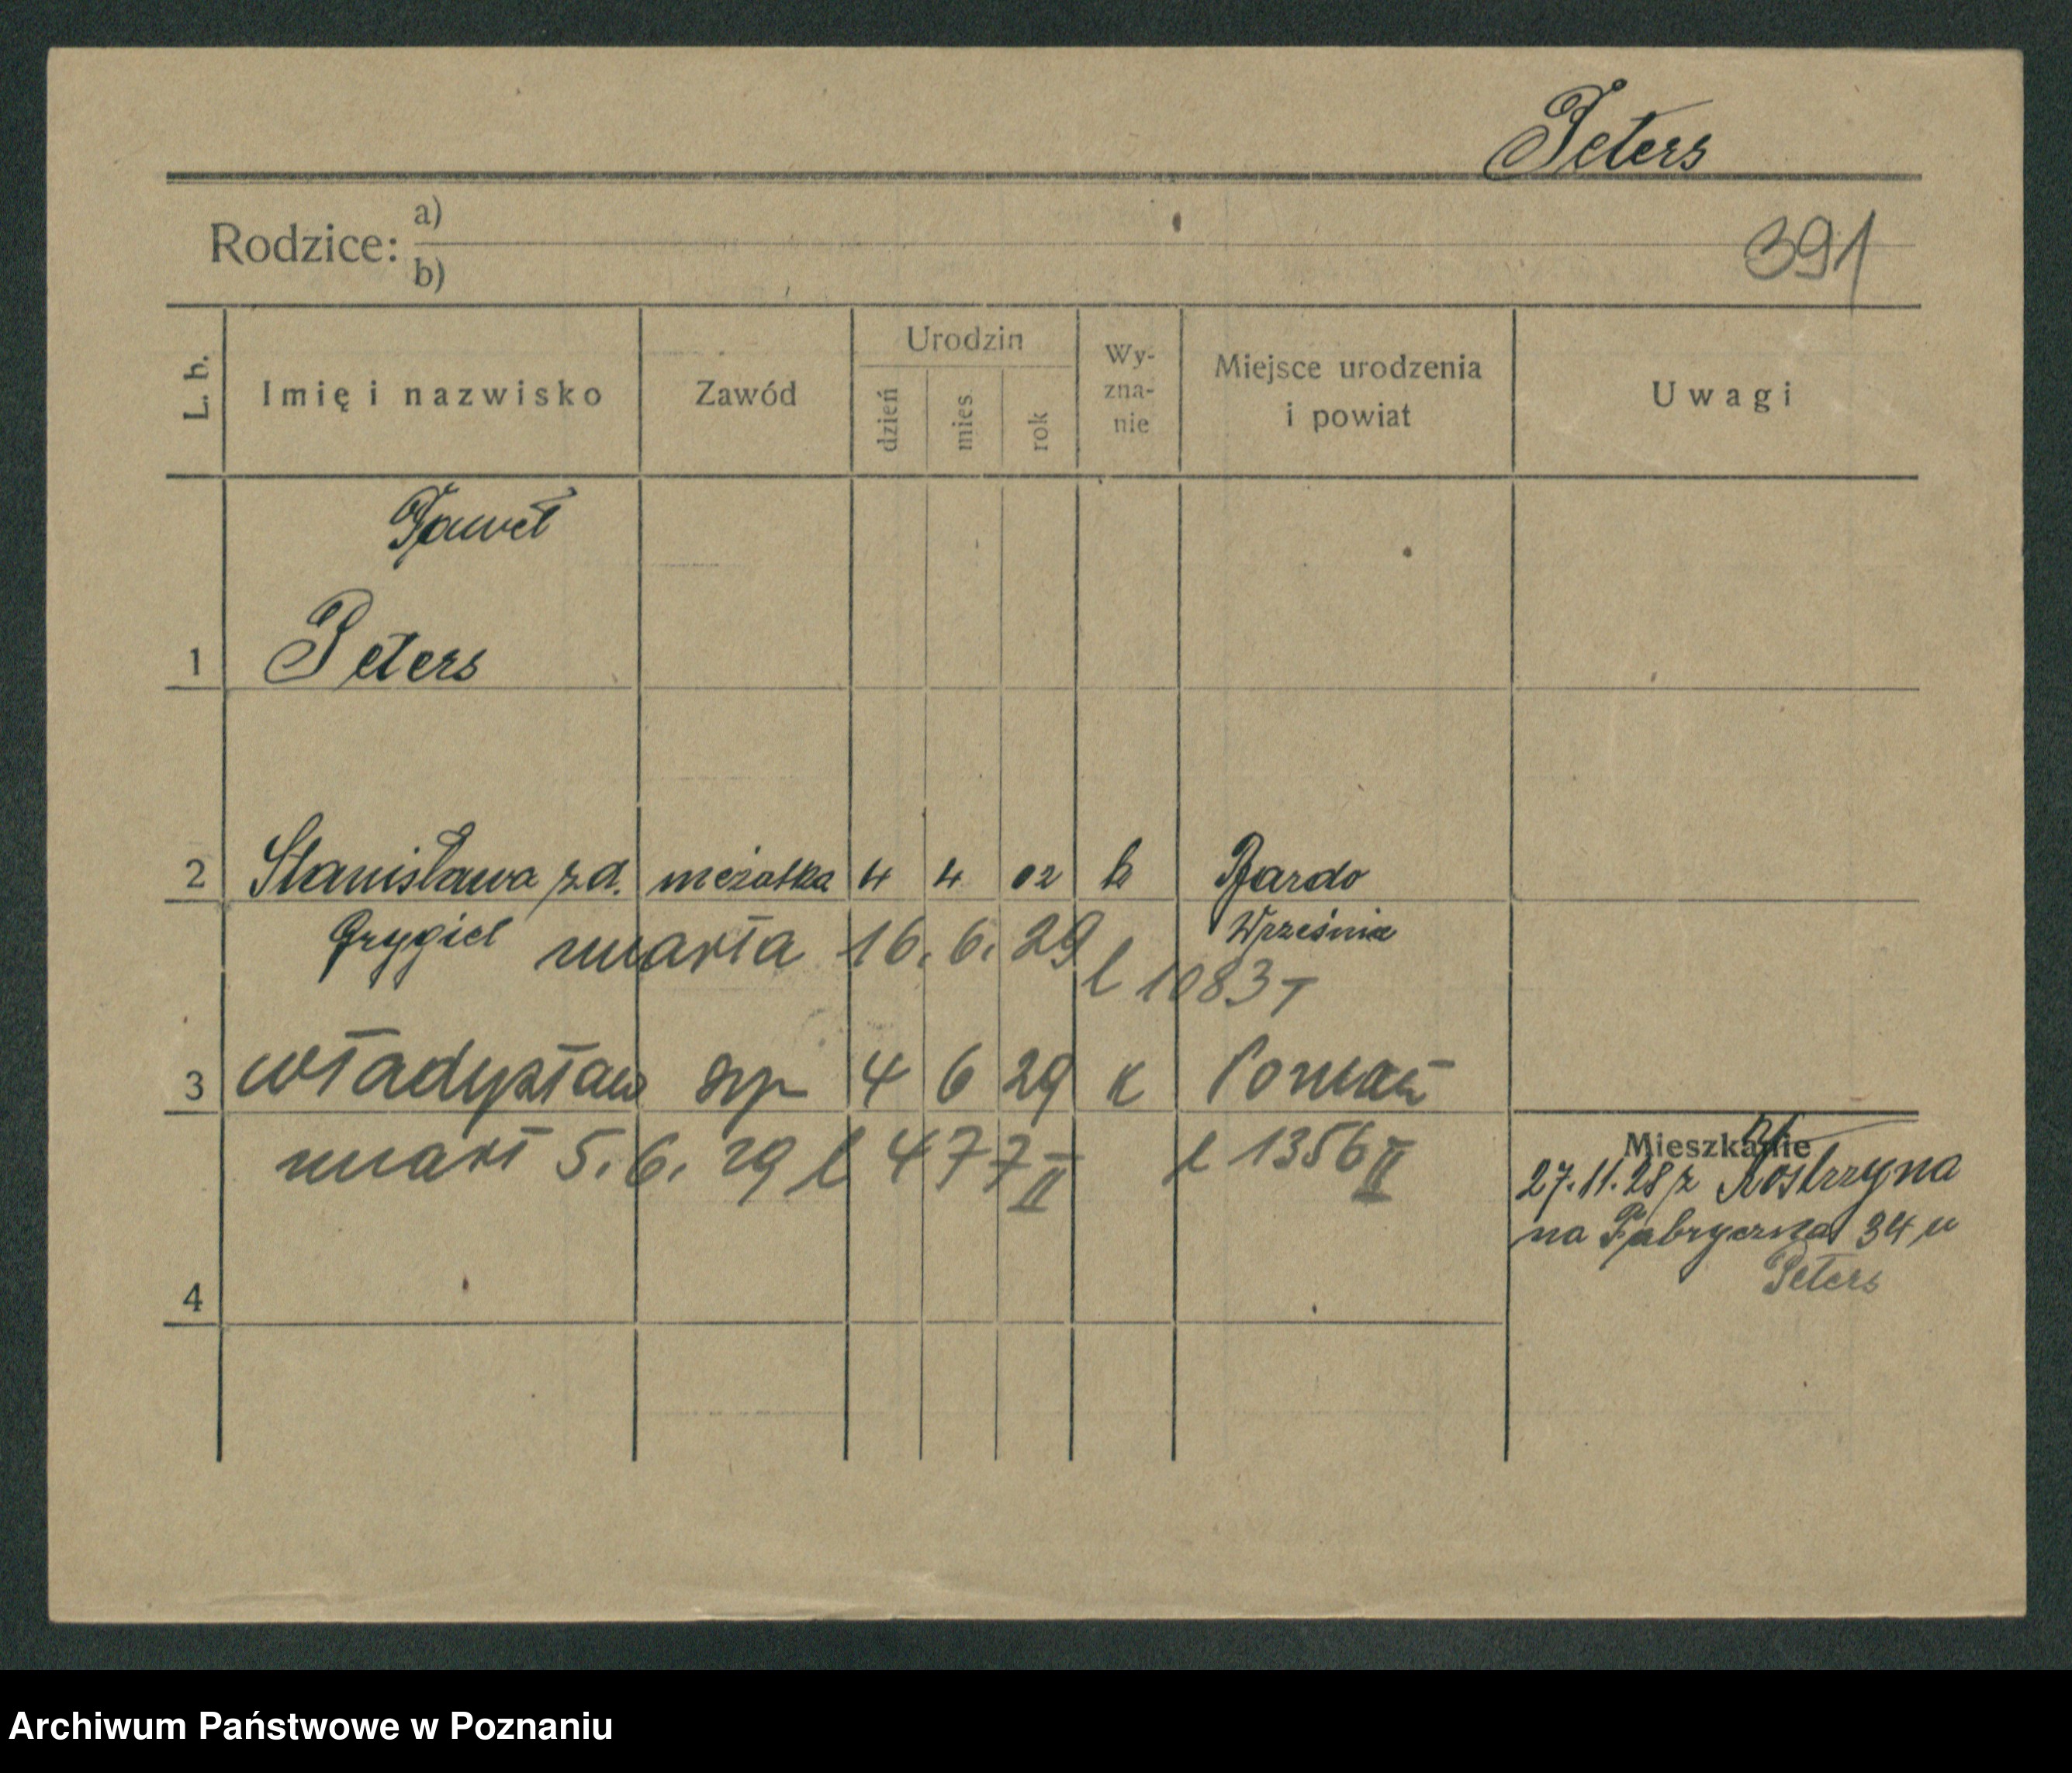 Peters
Rodzice: a)
b)
391
L. b. Imię i nazwisko Zawód Urodzin dzień mies rok Wy-zna-nie Miejsce urodzenia i powiat Uwagi
Paweł
1 Peters
2 Stanisława z d. mężatka 4 4 02 k Bardo
Grygiel Września
umarła 16. 6. 29 l 1083 I
3 Władysław syn 4 6 29 k Poznań
umarł 5. 6. 29 l 477 II l 1356 II
Mieszkanie
27. 11. 28 z Kostrzyna
na Fabryczna 34 u
Peters
4
Archiwum Państwowe w Poznaniu